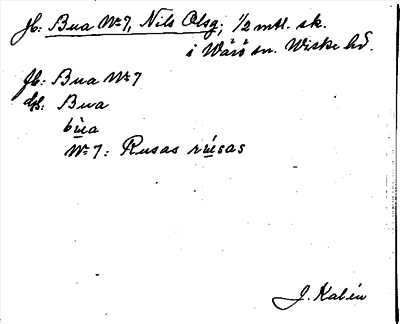 Jb: Bua Nº 7, Nils Olsg; 1/2 mtl. sk.
i Wärö sn. Wiske hd.
Jb: Bua Nº 7
ds: Bua
bùa
Nº 7: Rusas rúsas
J. Kalén